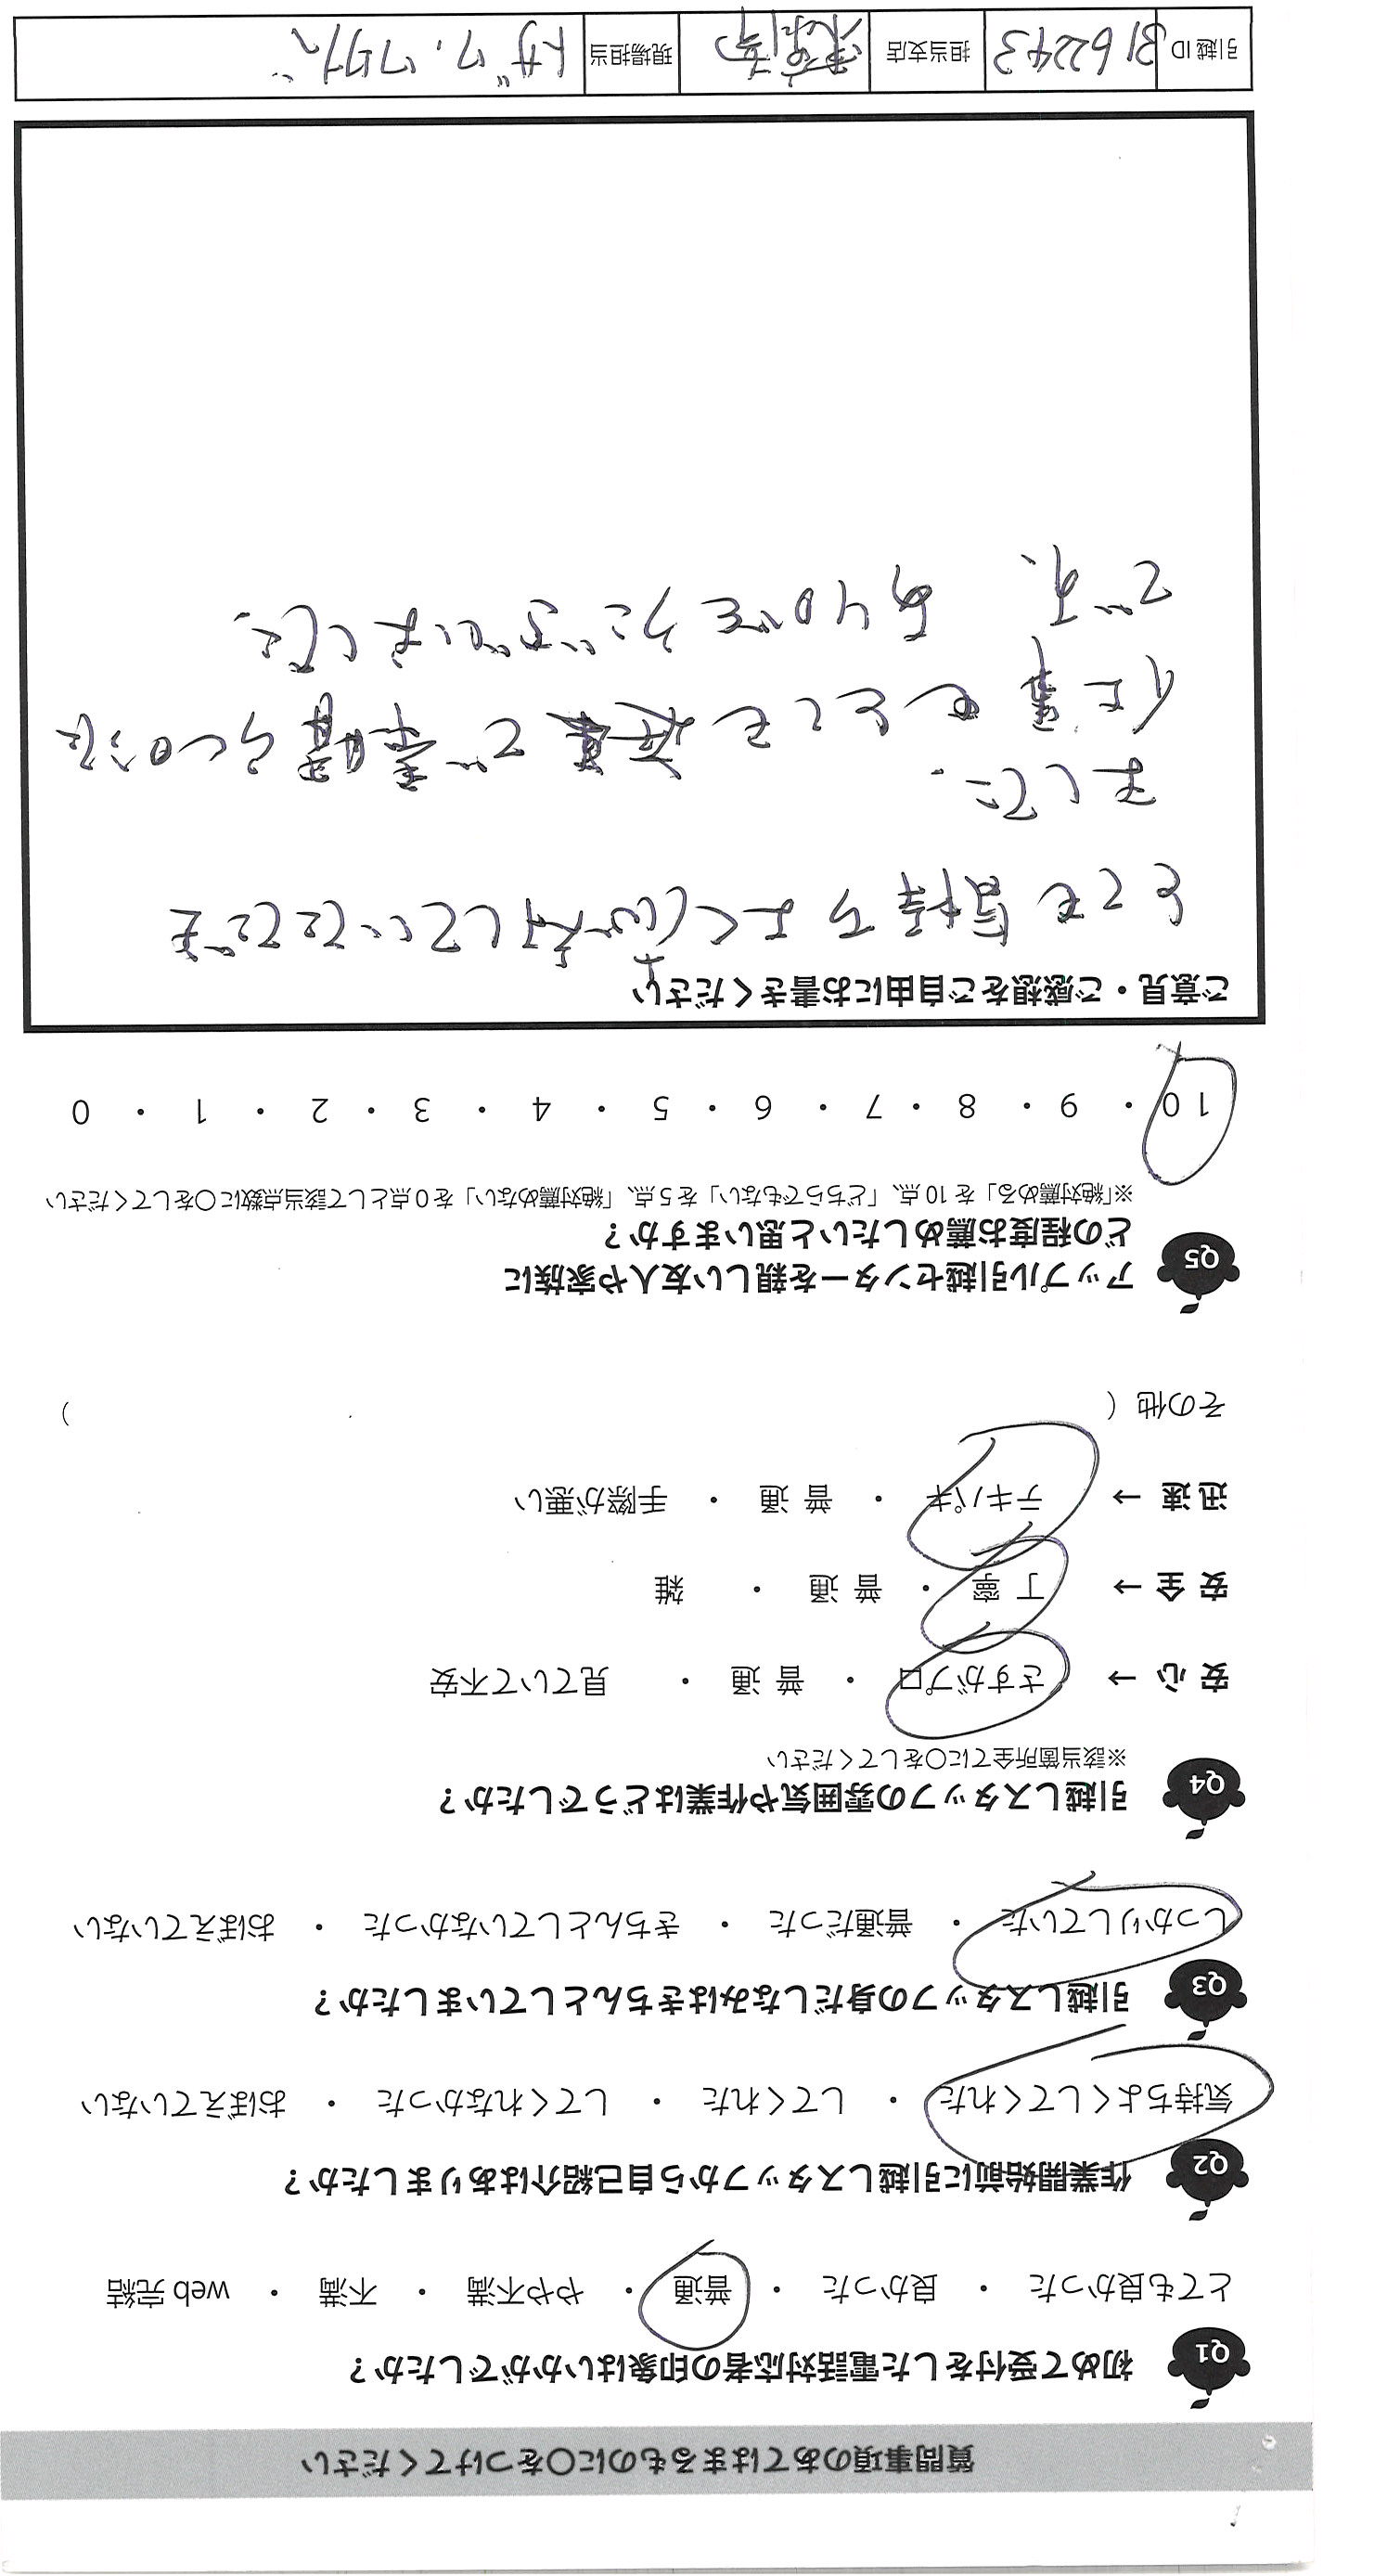 質問事項のあてはまるものに〇をつけてください
Q1 初めて受付をした電話対応者の印象はいかがでしたか？
とても良かった ・ 良かった ・ 普通 ・ やや不満 ・ 不満 ・ web 完結
Q2 作業開始前に引越しスタッフから自己紹介はありましたか？
気持ちよくしてくれた ・ してくれた ・ してくれなかった ・ おぼえていない
Q3 引越しスタッフの身だしなみはきちんとしていましたか？
しっかりしていた ・ 普通だった ・ きちんとしていなかった ・ おぼえていない
Q4 引越しスタッフの雰囲気や作業はどうでしたか？
※該当箇所全てに〇をしてください
安 心 → さすがプロ ・ 普 通 ・ 見ていて不安
安 全 → 丁 寧 ・ 普 通 ・ 雑
迅 速 → テキパキ ・ 普 通 ・ 手際が悪い
その他 （ ）
Q5 アップル引越センターを親しい友人や家族に
どの程度お薦めしたいと思いますか？
※「絶対薦める」を 10 点、「どちらでもない」を 5 点、「絶対薦めない」を 0 点として該当点数に〇をしてください
10 ・ 9 ・ 8 ・ 7 ・ 6 ・ 5 ・ 4 ・ 3 ・ 2 ・ 1 ・ 0
ご意見・ご感想をご自由にお書きください
とても気持ちよく対していただき
ました。
仕事もとても で素晴らしの
です。 ありがとうございました。
引越 ID 3162243 担当支店 現場担当